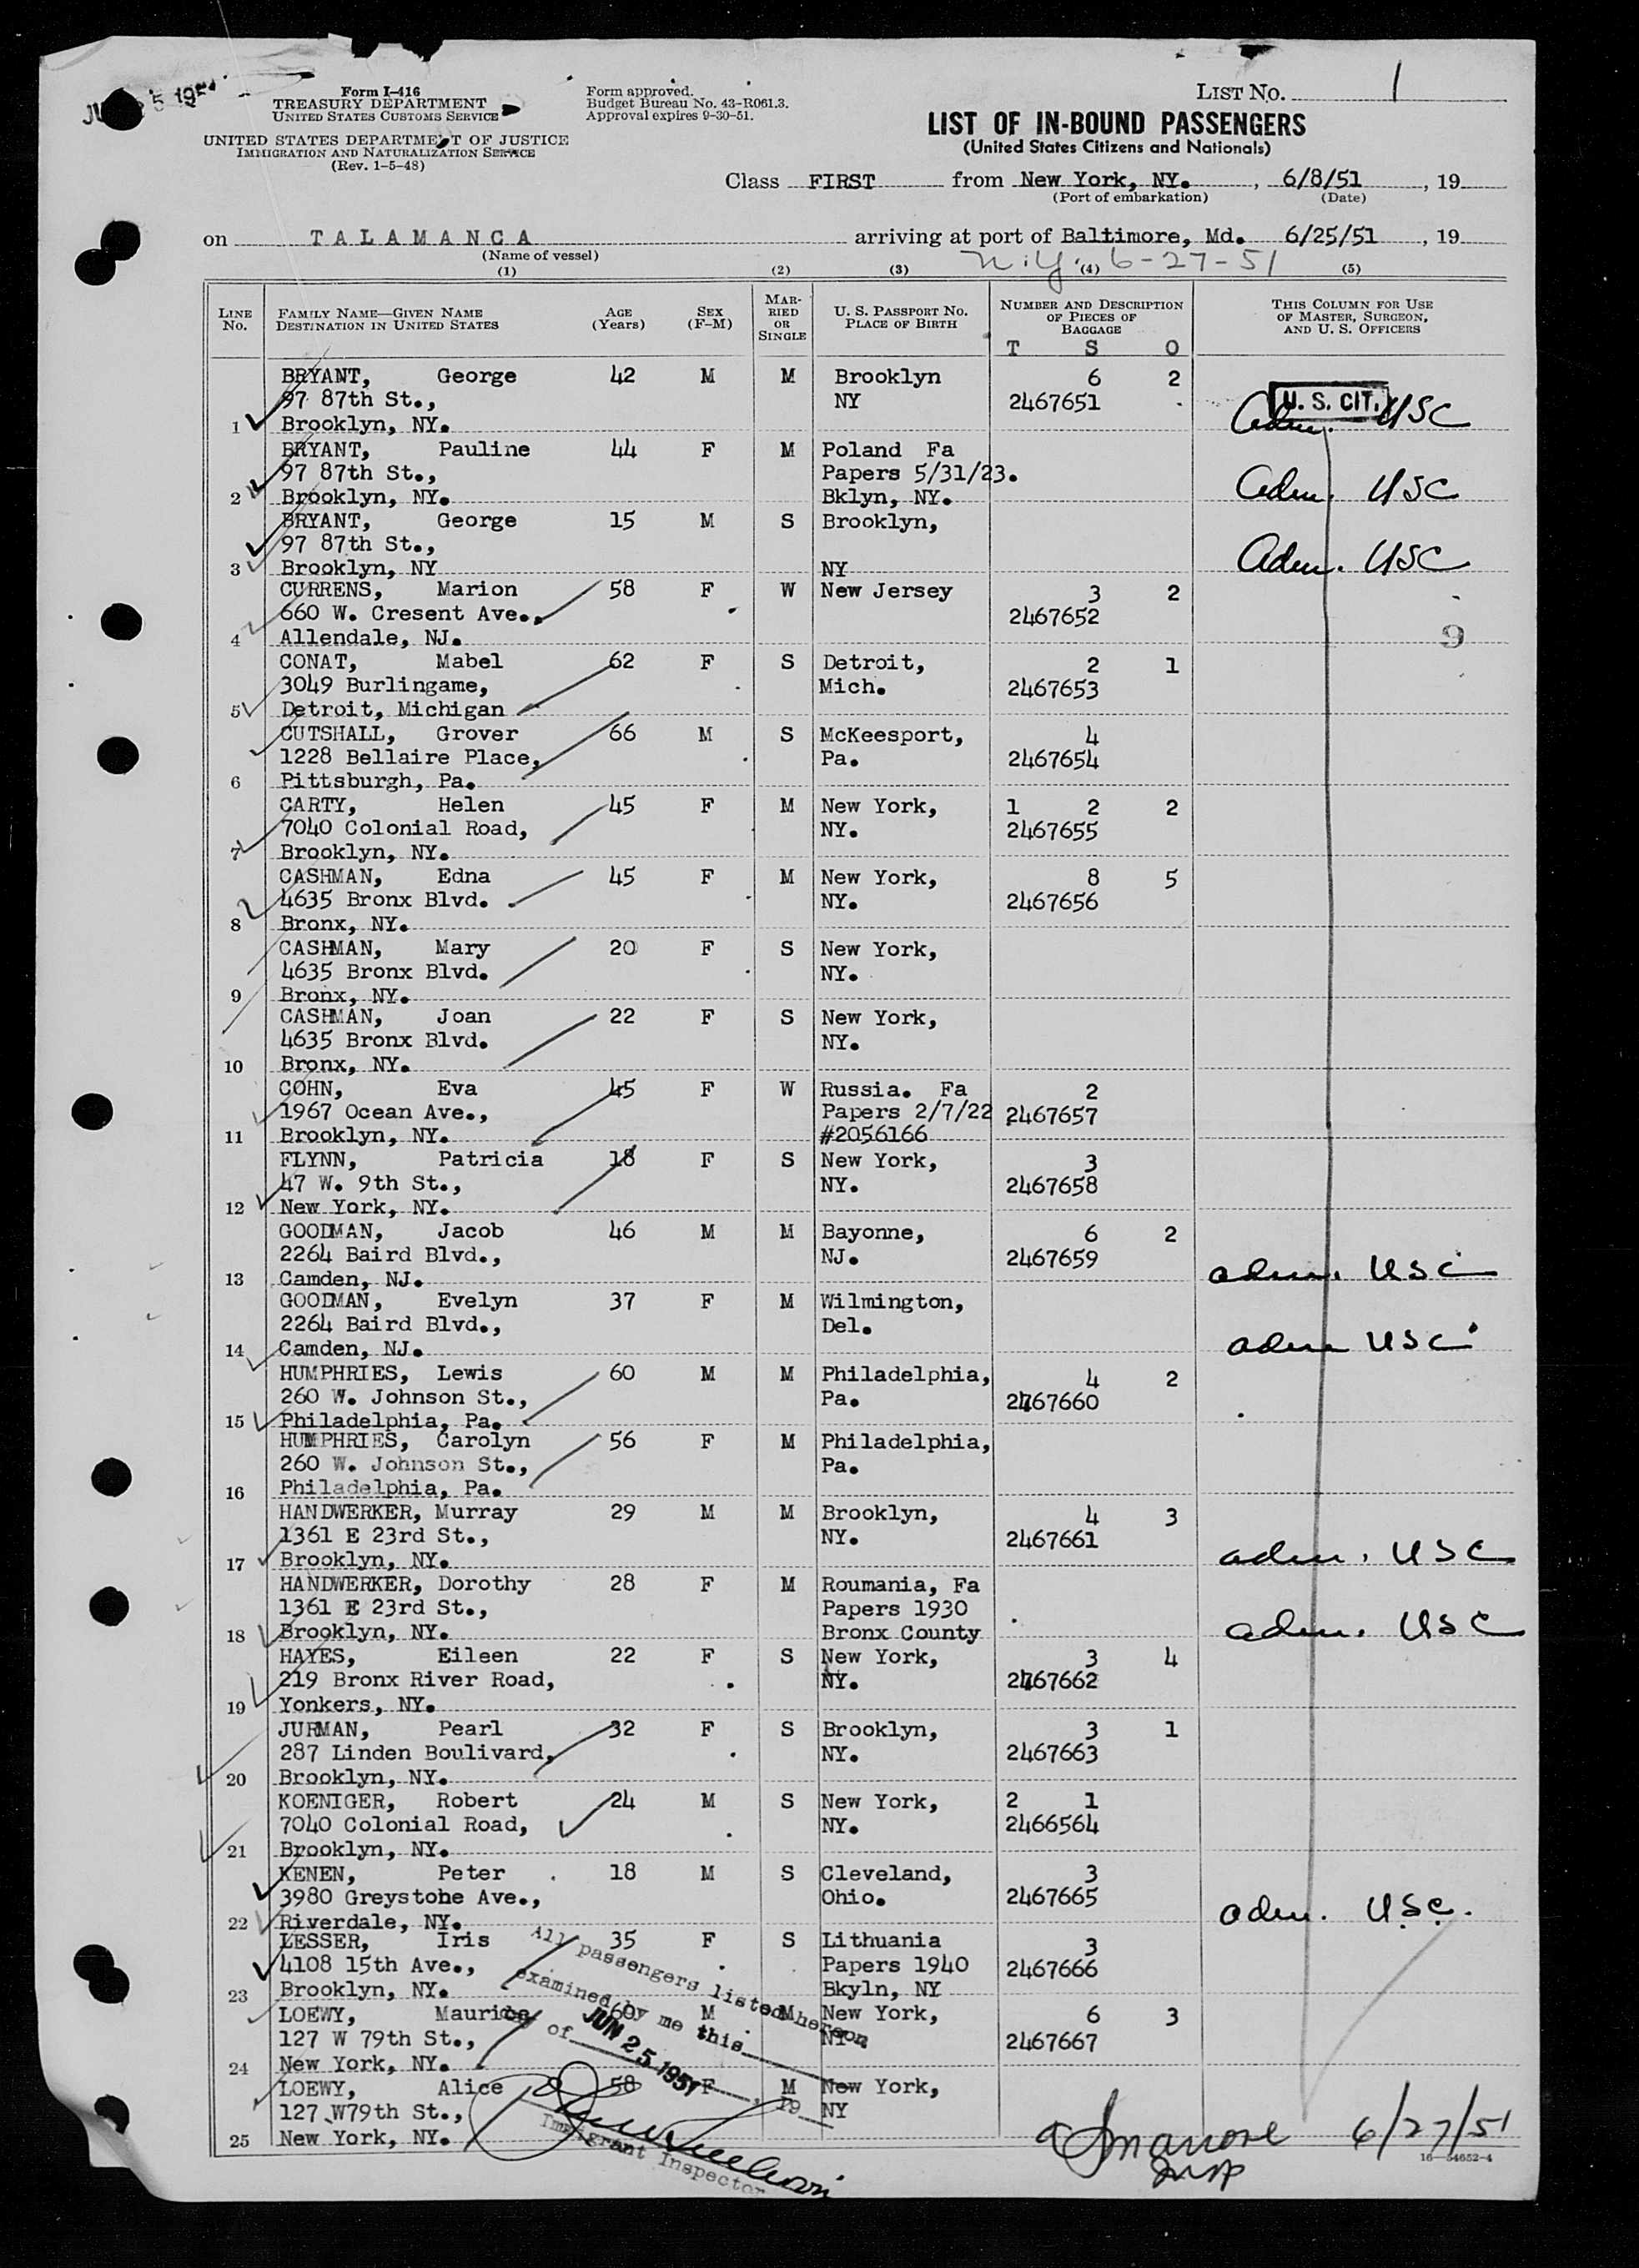 JUN 25 1951
Form I-416
TREASURY DEPARTMENT
UNITED STATES CUSTOMS SERVICE
UNITED STATES DEPARTMENT OF JUSTICE
IMMIGRATION AND NATURALIZATION SERVICE
(Rev. 1-5-48)
Form approved.
Budget Bureau No. 43-R061.3.
Approval expires 9-30-51.
LIST NO. 1
LIST OF IN-BOUND PASSENGERS
(United States Citizens and Nationals)
Class FIRST from New York, NY. , 6/8/51 , 19
(Port of embarkation) (Date)
on TALAMANCA arriving at port of Baltimore, Md. 6/25/51 , 19
(Name of vessel) N.Y. 6-27-51
(1) (2) (3) (4) (5)
LINE No. FAMILY NAME—GIVEN NAME DESTINATION IN UNITED STATES AGE (Years) SEX (F-M) MARRIED OR SINGLE U. S. PASSPORT NO. PLACE OF BIRTH NUMBER AND DESCRIPTION OF PIECES OF BAGGAGE THIS COLUMN FOR USE OF MASTER, SURGEON, AND U. S. OFFICERS
T S O
BRYANT, George 42 M M Brooklyn 6 2
97 87th St., NY 2467651 U. S. CIT.
1 Brooklyn, NY. Adm. USC
BRYANT, Pauline 44 F M Poland Fa
97 87th St., Papers 5/31/23.
2 Brooklyn, NY. Bklyn, NY. Adm. USC
BRYANT, George 15 M S Brooklyn,
97 87th St.,
3 Brooklyn, NY NY Adm. USC
CURRENS, Marion 58 F W New Jersey 3 2
660 W. Cresent Ave., 2467652
4 Allendale, NJ. 9
CONAT, Mabel 62 F S Detroit, 2 1
3049 Burlingame, Mich. 2467653
5 Detroit, Michigan
CUTSHALL, Grover 66 M S McKeesport, 4
1228 Bellaire Place, Pa. 2467654
6 Pittsburgh, Pa.
CARTY, Helen 45 F M New York, 1 2 2
7040 Colonial Road, NY. 2467655
7 Brooklyn, NY.
CASHMAN, Edna 45 F M New York, 8 5
4635 Bronx Blvd. NY. 2467656
8 Bronx, NY.
CASHMAN, Mary 20 F S New York,
4635 Bronx Blvd. NY.
9 Bronx, NY.
CASHMAN, Joan 22 F S New York,
4635 Bronx Blvd. NY.
10 Bronx, NY.
COHN, Eva 45 F W Russia. Fa 2
1967 Ocean Ave., Papers 2/7/22 2467657
11 Brooklyn, NY. #2056166
FLYNN, Patricia 18 F S New York, 3
47 W. 9th St., NY. 2467658
12 New York, NY.
GOODMAN, Jacob 46 M M Bayonne, 6 2
2264 Baird Blvd., NJ. 2467659
13 Camden, NJ. adm. USC
GOODMAN, Evelyn 37 F M Wilmington,
2264 Baird Blvd., Del.
14 Camden, NJ. adm USC
HUMPHRIES, Lewis 60 M M Philadelphia, 4 2
260 W. Johnson St., Pa. 2467660
15 Philadelphia, Pa.
HUMPHRIES, Carolyn 56 F M Philadelphia,
260 W. Johnson St., Pa.
16 Philadelphia, Pa.
HANDWERKER, Murray 29 M M Brooklyn, 4 3
1361 E 23rd St., NY. 2467661
17 Brooklyn, NY. adm. USC
HANDWERKER, Dorothy 28 F M Roumania, Fa
1361 E 23rd St., Papers 1930
18 Brooklyn, NY. Bronx County adm. USC
HAYES, Eileen 22 F S New York, 3 4
219 Bronx River Road, NY. 2467662
19 Yonkers, NY.
JURMAN, Pearl 32 F S Brooklyn, 3 1
287 Linden Boulivard, NY. 2467663
20 Brooklyn, NY.
KOENIGER, Robert 24 M S New York, 2 1
7040 Colonial Road, NY. 2466564
21 Brooklyn, NY.
KENEN, Peter 18 M S Cleveland, 3
3980 Greystone Ave., Ohio. 2467665
22 Riverdale, NY. adm. USC.
LESSER, Iris 35 F S Lithuania 3
4108 15th Ave., Papers 1940 2467666
23 Brooklyn, NY. Bkyln, NY
LOEWY, Maurice 60 M M New York, 6 3
127 W 79th St., NY 2467667
24 New York, NY.
LOEWY, Alice 58 F M New York,
127 W79th St., NY
25 New York, NY.
All passengers listed hereon
examined by me this
day of JUN 25 1951, 19
Immigrant Inspector
Insp
6/27/51
16—54652-4